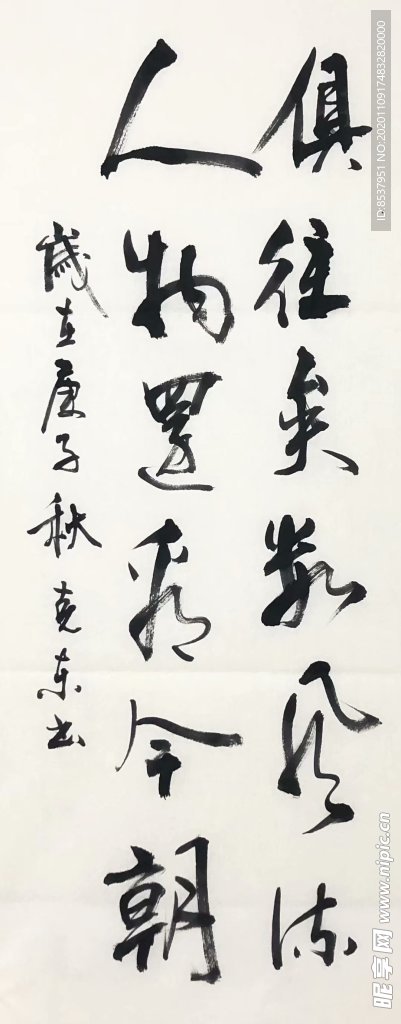 俱往矣數風流
人物還看今朝
歲在庚子秋克東书
ID:8537951 NO:20201109174832820000
昵享网 www.nipic.cn